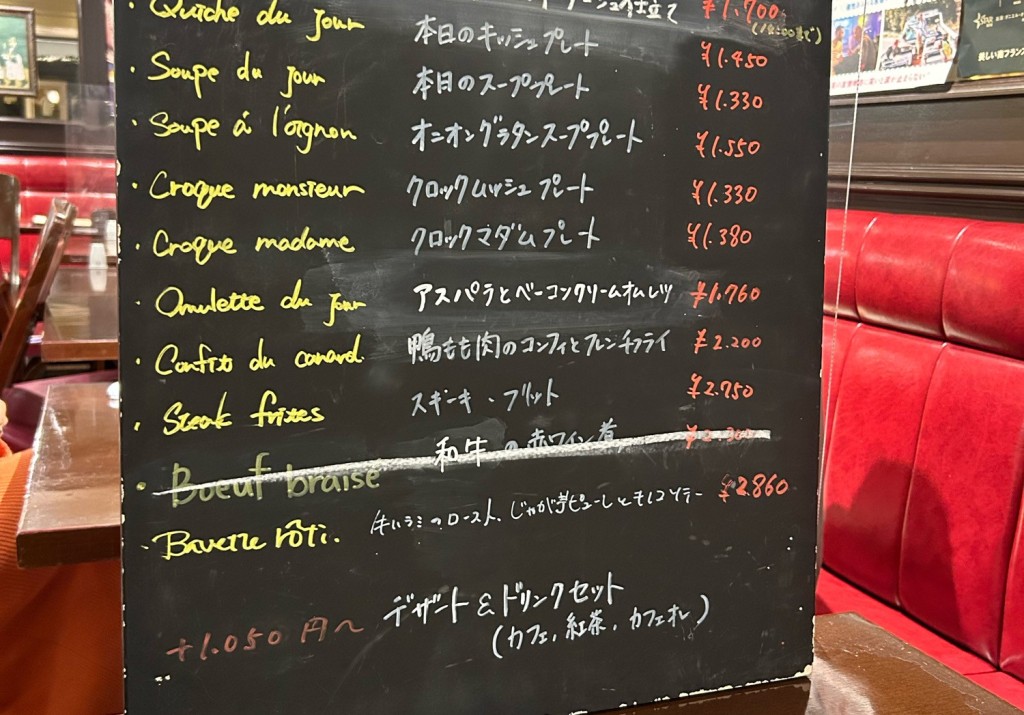 仕立て ¥1.700
・Quiche du jour 本日のキッシュプレート ¥1.450
・Soupe du jour 本日のスーププレート ¥1.330
・Soupe à l'oignon オニオングラタンスーププレート ¥1.550
・Croque monsieur クロックムッシュプレート ¥1.330
・Croque madame クロックマダムプレート ¥1.380
・Omulette du jour アスパラとベーコンクリームオムレツ ¥1.760
・Confit du canard. 鴨もも肉のコンフィとフレンチフライ ¥2.200
・Steak frites ステーキ・フリット ¥2.750
・Boeuf braisé 和牛の赤ワイン煮
・Bavette rôti. 牛ハラミのロースト、じゃが芋ピューレと ¥2.860
+1.050円〜 デザート&ドリンクセット
(カフェ, 紅茶, カフェオレ)
美しい南フランス